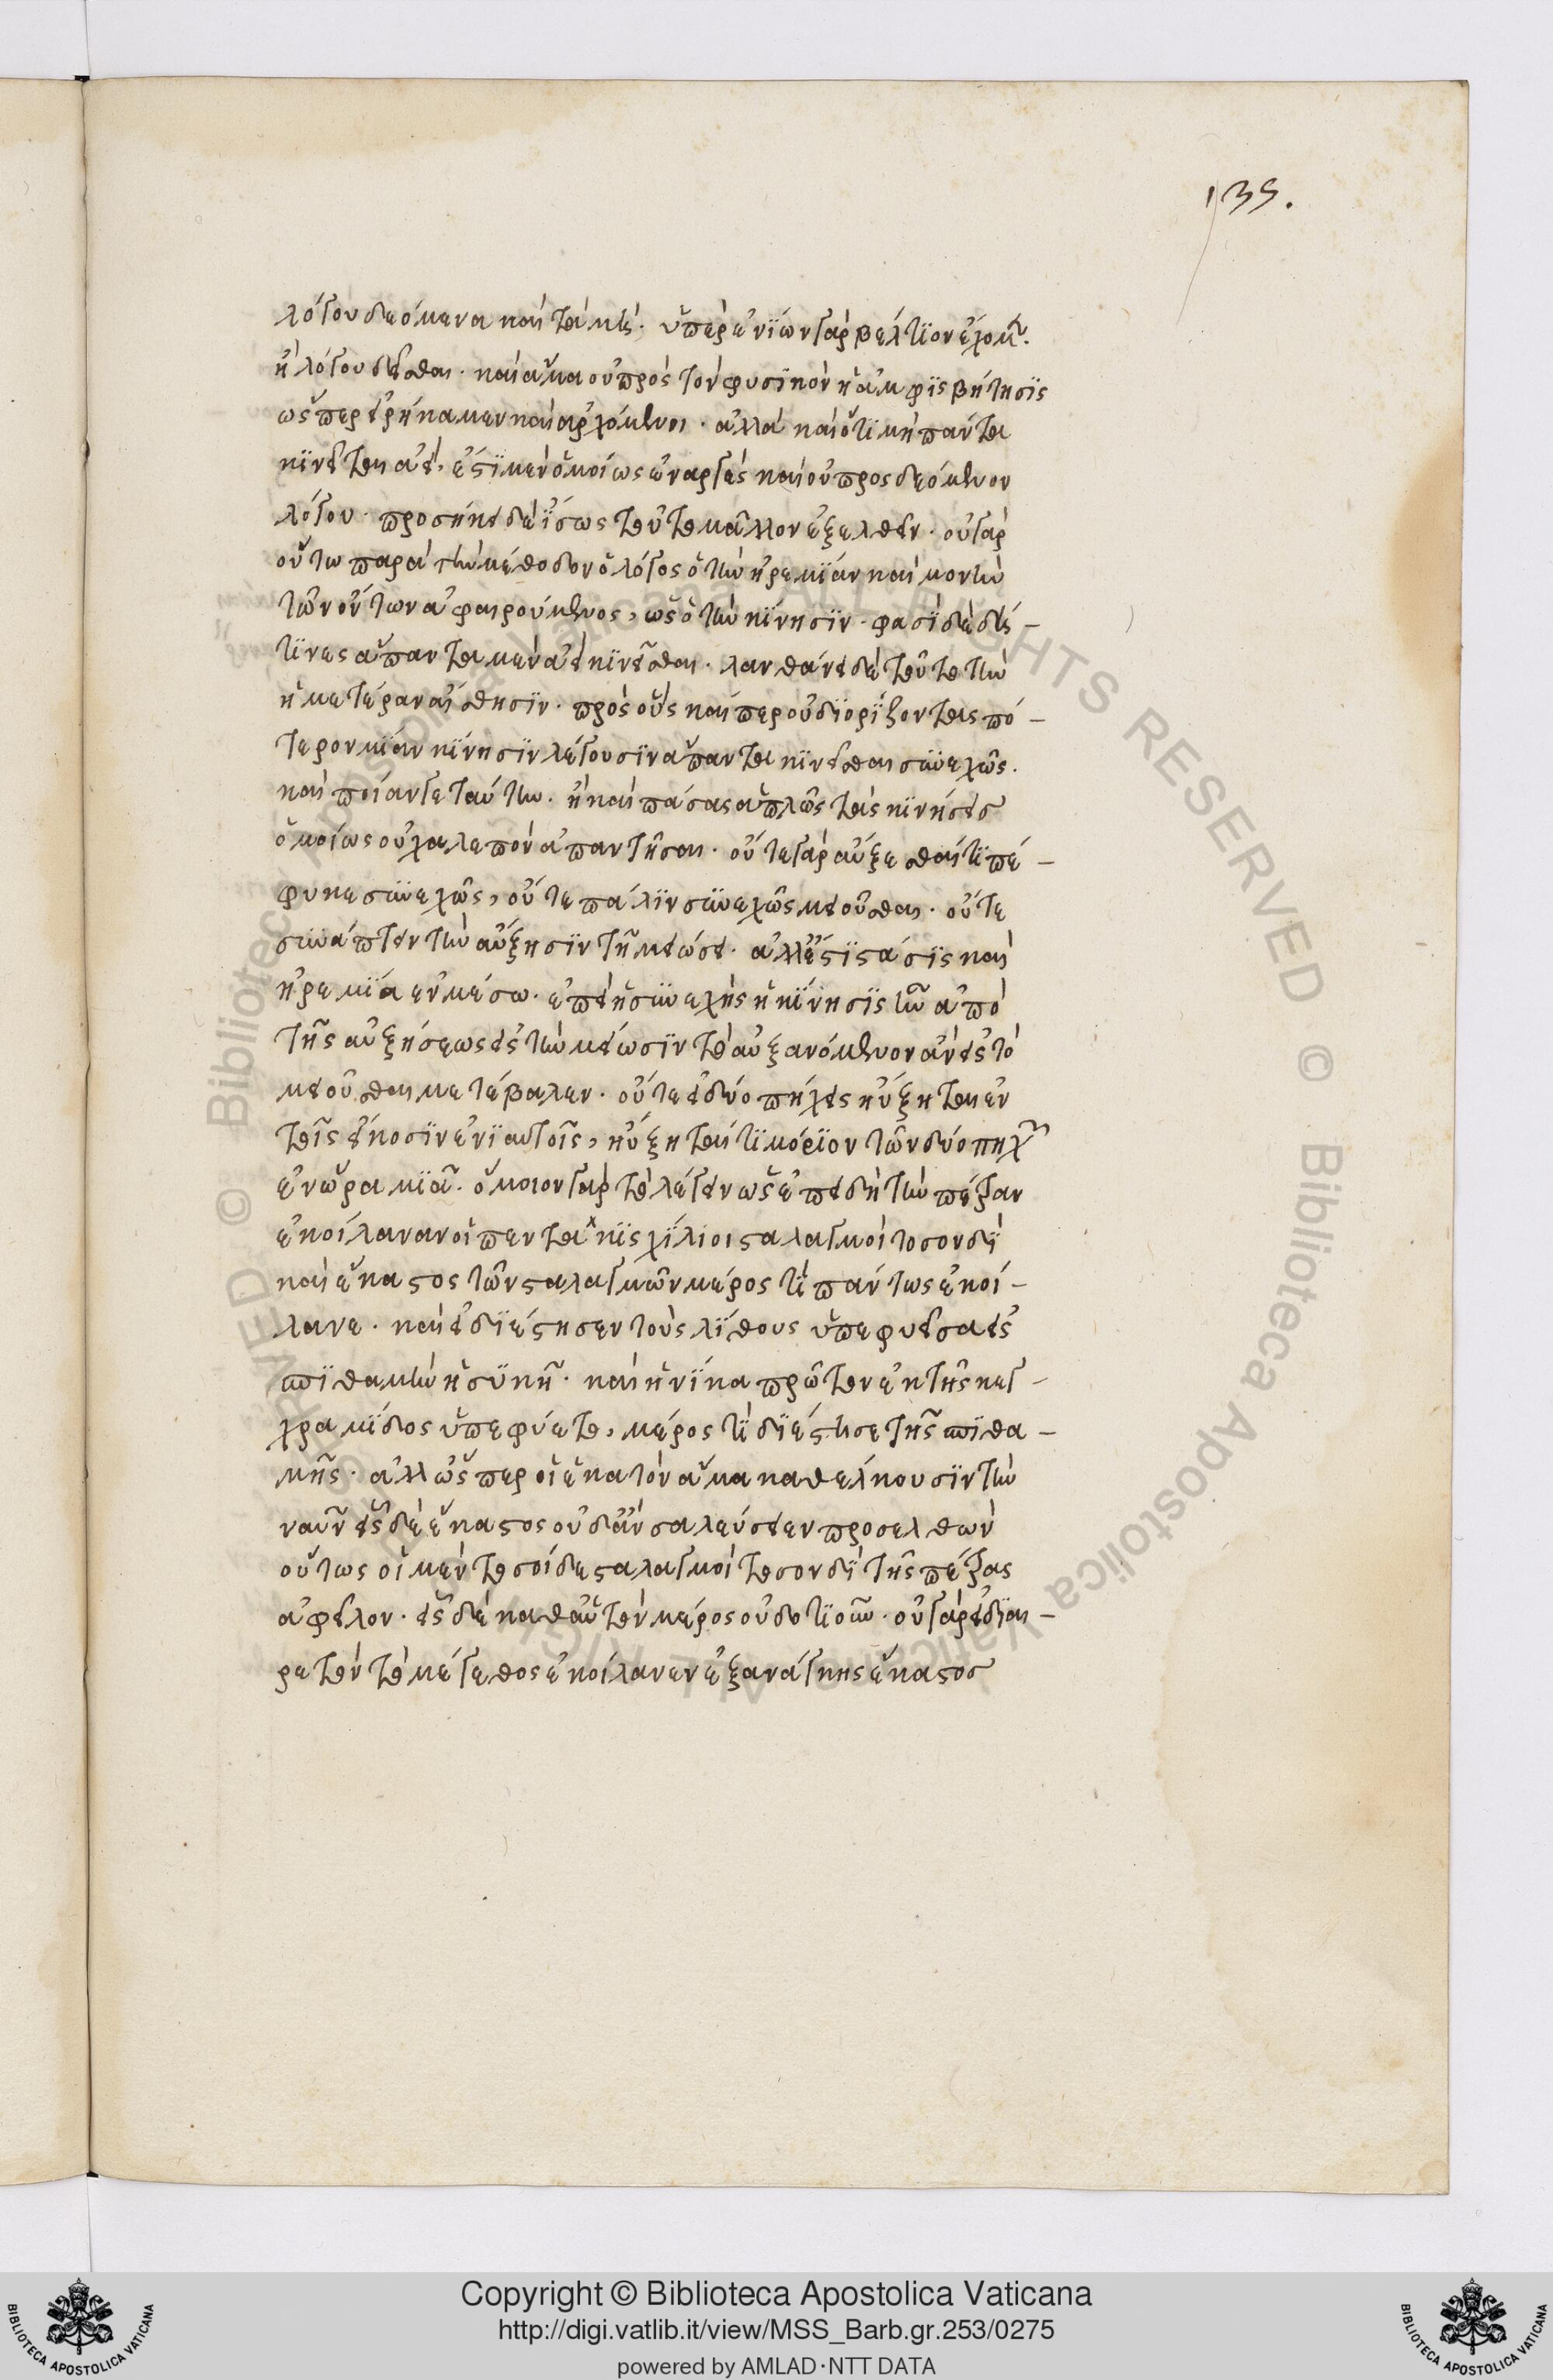 λόγου δεόμενα καὶ τὰ μή. ὑπὲρ ἐνίων γὰρ βέλτιον ἔχομεν.
ἢ λόγου δεῖσθαι. καὶ ἅμα οὐ πρὸς τὸν φυσϊκὸν ἡ ἀμφισβήτησϊς
ὥσπερ εἰρήκαμεν καὶ ἀρχόμενοι. ἀλλὰ καὶ ὅτϊ μὴ πάντα
κϊνεῖται ἀεί, ἐστϊ μὲν ὁμοίως ἐναργὲς καὶ οὐ προσδεόμενον
λόγου. προσήκει δὲ ἴσως τοῦτο μᾶλλον ἐξελθεῖν. οὐ γὰρ
οὕτω παρὰ τὴν μέθοδον ὁ λόγος ὁ τὴν ἠρεμϊαν καὶ μονὴν
τῶν ὄντων ἀφαιρούμενος, ὡς ὁ τὴν κϊνησϊν. φασὶ δὲ δή
τϊνες ἅπαντα μὲν ἀεὶ κϊνεῖσθαι. λανθάνει δὲ τοῦτο τὴν
ἡμετέραν αἴσθησϊν. πρὸς οὓς καίπερ οὐ δϊορϊζοντας πό-
τερον μϊαν κϊνησϊν λέγουσϊν ἅπαντα κϊνεῖσθαι συνεχῶς.
καὶ ποίαν γε ταύτην. ἢ καὶ πάσας ἁπλῶς τὰς κϊνήσεις
ὁμοίως οὐ χαλεπὸν ἀπαντῆσαι. οὔτε γὰρ αὔξεσθαί τϊ πέ-
φυκε συνεχῶς, οὔτε πάλϊν συνεχῶς μειοῦσθαι. οὔτε
συνάπτειν τὴν αὔξησϊν τῇ μειώσει. ἀλλ' ἔστϊ στάσϊς καὶ
ἠρεμϊα ἐν μέσω. ἐπεὶ ἡ συνεχὴς ἡ κϊνησϊς ἦν ἀπὸ
τῆς αὐξήσεως εἰς τὴν μείωσϊν τὸ αὐξανόμενον ἂν εἰς τὸ
μειοῦσθαι μετέβαλεν. οὔτε εἰ δύο πήχεις ηὔξηται ἐν
τοῖς εἴκοσϊν ἐνϊαυτοῖς, ηὔξηταί τϊ μόριον τῶν δύο πηχῶν
ἐν ὥρα μϊᾶ. ὅμοιον γὰρ τὸ λέγειν ὡς ἐπειδὴ τὴν πέτραν
ἐκοίλαναν οἱ πεντακϊσχίλιοι σταλαγμοὶ τοσονδὶ
καὶ ἕκαστος τῶν σταλαγμῶν μέρος τϊ πάντως ἐκοί-
λανε. καὶ εἰ δϊέστησεν τοὺς λϊθους ὑπεφυεῖσα εἰς
σπϊθαμὴν ἡ συκῆ. καὶ ἡνϊκα πρῶτον ἐκ τῆς κεγ-
χραμϊδος ὑπεφύετο, μέρος τϊ δϊέστησε τῆς σπϊθα-
μῆς. ἀλλ' ὥσπερ οἱ ἑκατὸν ἅμα καθέλκουσϊν τὴν
ναῦν εἷς δὲ ἕκαστος οὐδ' ἂν σαλεύσειεν προσελθὼν
οὕτως οἱ μὲν τοσοίδε σταλαγμοὶ τοσονδὶ τῆς πέτρας
ἀφεῖλον. εἷς δὲ καθ' αὑτὸν μέρος οὐδοτϊοῦν. οὐ γὰρ εἰ δϊαι-
ρετὸν τὸ μέγεθος ἐκοίλανεν ἐξ ἀνάγκης ἕκαστος
135.
Copyright © Biblioteca Apostolica Vaticana
http://digi.vatlib.it/view/MSS_Barb.gr.253/0275
powered by AMLAD·NTT DATA